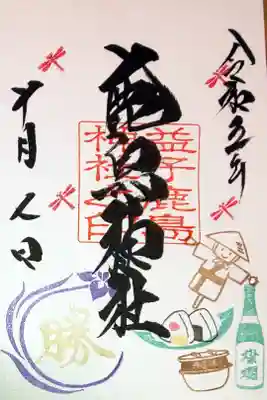 令和五年
鹿島神社
益子鹿島
神社之印
十月八日
勝
燦爛